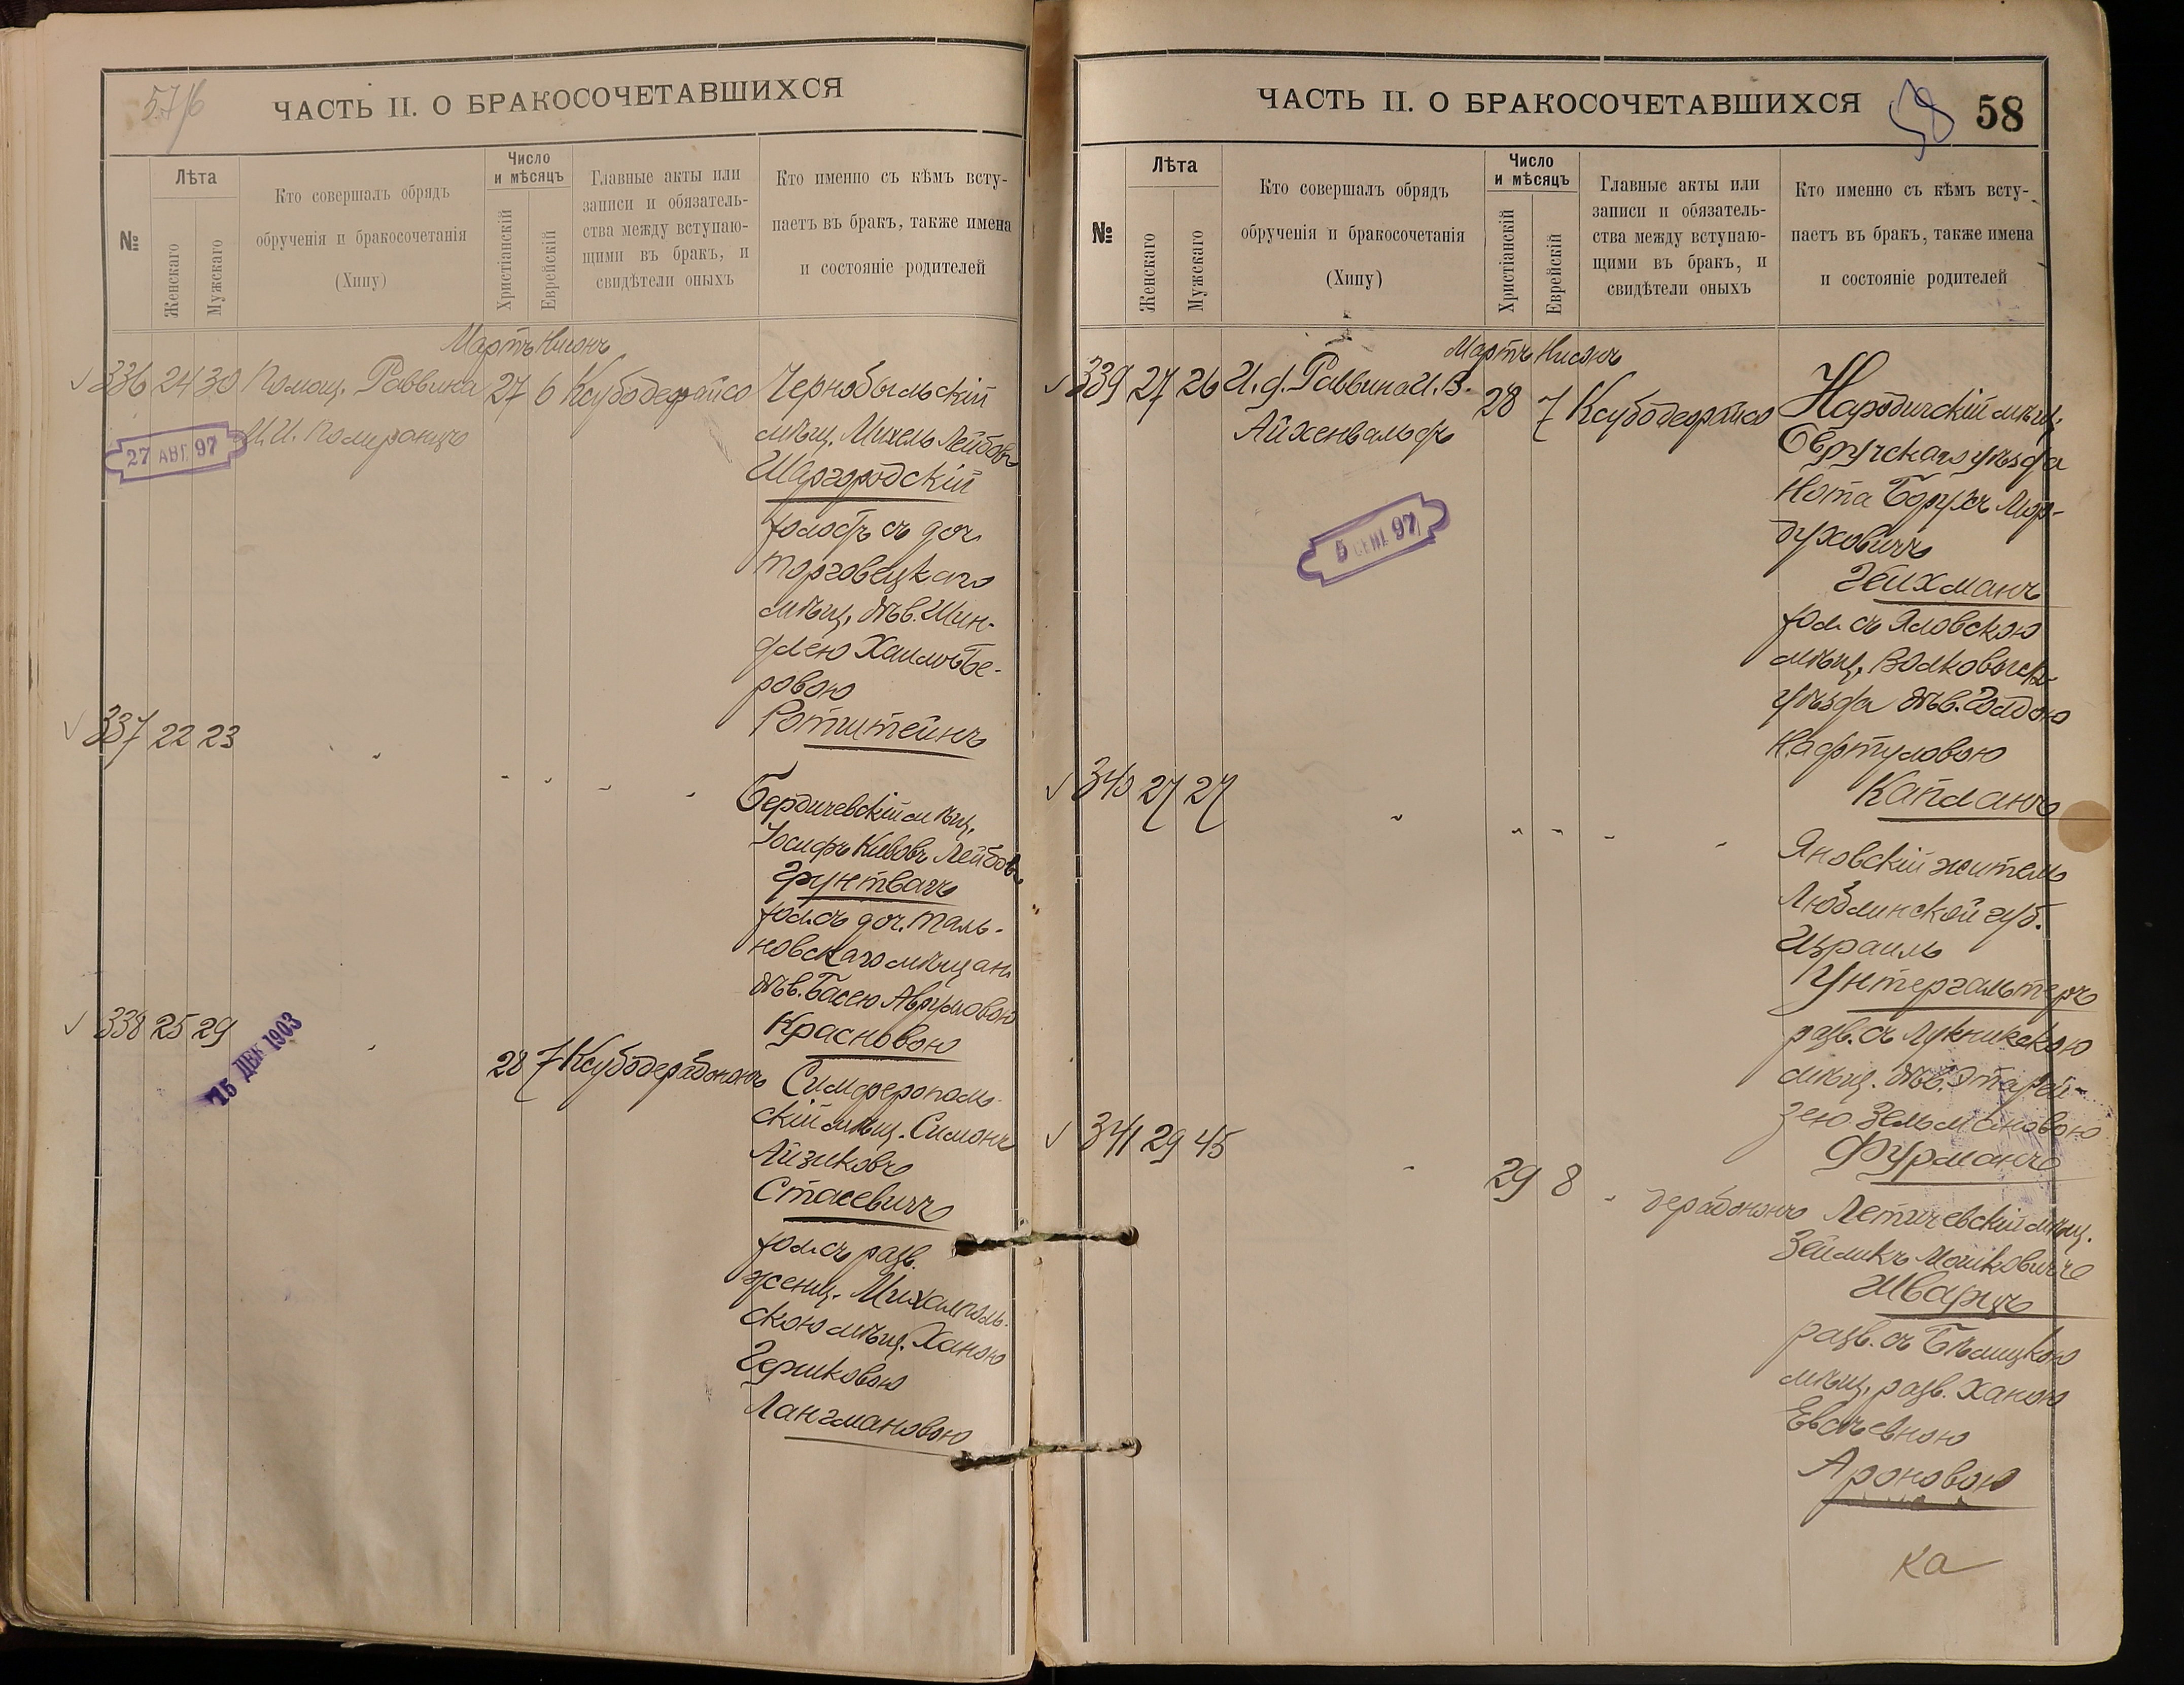 57/б
ЧАСТЬ II. О БРАКОСОЧЕТАВШИХСЯ
№
Лѣта
Женскаго
Мужскаго
Кто совершалъ обрядъ
обрученія и бракосочетанія
(Хипу)
Число
и мѣсяцъ
Христіанскій
Еврейскій
Главные акты или
записи и обязатель-
ства между вступаю-
щими въ бракъ, и
свидѣтели оныхъ
Кто именно съ кѣмъ всту-
паетъ въ бракъ, также имена
и состояніе родителей
Мартъ Нисонъ
336 24 30 Помощ. Раввина 27 6 Ксубодеорайсо
И.И. Полиранцъ
27 АВГ 97
Чернобыльскій
мѣщ. Михель Лейбовъ
Шаргородскій
холостъ съ доч.
Торговецкаго
мѣщ. дѣв. Шин-
длею Хаимъ Бе-
ровою
Ротштейнъ
337 22 23 " " " " "
Бердичевскій мѣщ.
Іосифъ Кивовъ Лейбовъ
Грунтвагъ
хол. съ доч. Таль-
новскаго мѣщан.
дѣв. Басею Аврумовою
Красновою
338 25 29 " 28 7 Ксубодерабононъ
15 ДЕК 1903
Симферополь-
скій мѣщ. Симонъ
Айзиковъ
Стасевичъ
хол. съ разв.
женщ. Михалполь-
скою мѣщ. Ханою
Гершковою
Лангмановою
ЧАСТЬ II. О БРАКОСОЧЕТАВШИХСЯ
58
58
№
Лѣта
Женскаго
Мужскаго
Кто совершалъ обрядъ
обрученія и бракосочетанія
(Хипу)
Число
и мѣсяцъ
Христіанскій
Еврейскій
Главные акты или
записи и обязатель-
ства между вступаю-
щими въ бракъ, и
свидѣтели оныхъ
Кто именно съ кѣмъ всту-
паетъ въ бракъ, также имена
и состояніе родителей
Мартъ Нисонъ
339 27 26 И. д. Раввина И.В. 28 7 Ксубодеорайсо
Айхенвальдъ
5 СЕН 97
Народичскій мѣщ.
Овручскаго уѣзда
Нота Борухъ Мор-
духовичъ
Гейхманъ
хол. съ Яловскою
мѣщ. Волковыск.
уѣзда дѣв. Голдою
Нафтуловою
Капланъ
340 27 27 " " " " "
Яновскій житель
Люблинской губ.
Израиль
Унтергальтеръ
разв. съ Лукникскою
мѣщ. дѣв. Эта Рей-
зею Зельмановою
Фурманъ
341 29 45 " 29 8 " дерабононъ
Летичевскій мѣщ.
Зейликъ Мошковичъ
Шварцъ
разв. съ Бѣлицкою
мѣщ. разв. Ханою
Евсѣевною
Ароновою
ка